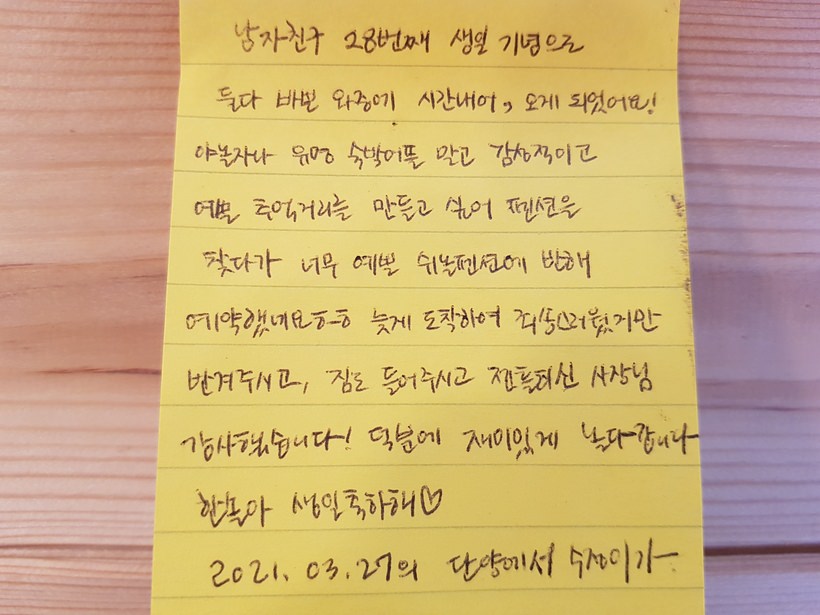 남자친구 28번째 생일 기념으로
둘다 바쁜 와중에 시간내어, 오게 되었어요!
야놀자나 유명 숙박어플 말고 감성적이고
예쁜 추억거리를 만들고 싶어 펜션을
찾다가 너무 예쁜 쉬놀펜션에 반해
예약했네요ㅎㅎ 늦게 도착하여 죄송스러웠지만
반겨주시고, 짐도 들어주시고 젠틀하신 사장님
감사했습니다! 덕분에 재미있게 놀다갑니다
한솔아 생일축하해♡
2021. 03. 27의 단양에서 수정이가